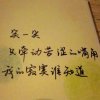 笑一笑
只牵动苦涩的嘴角
我的寂寞谁知道